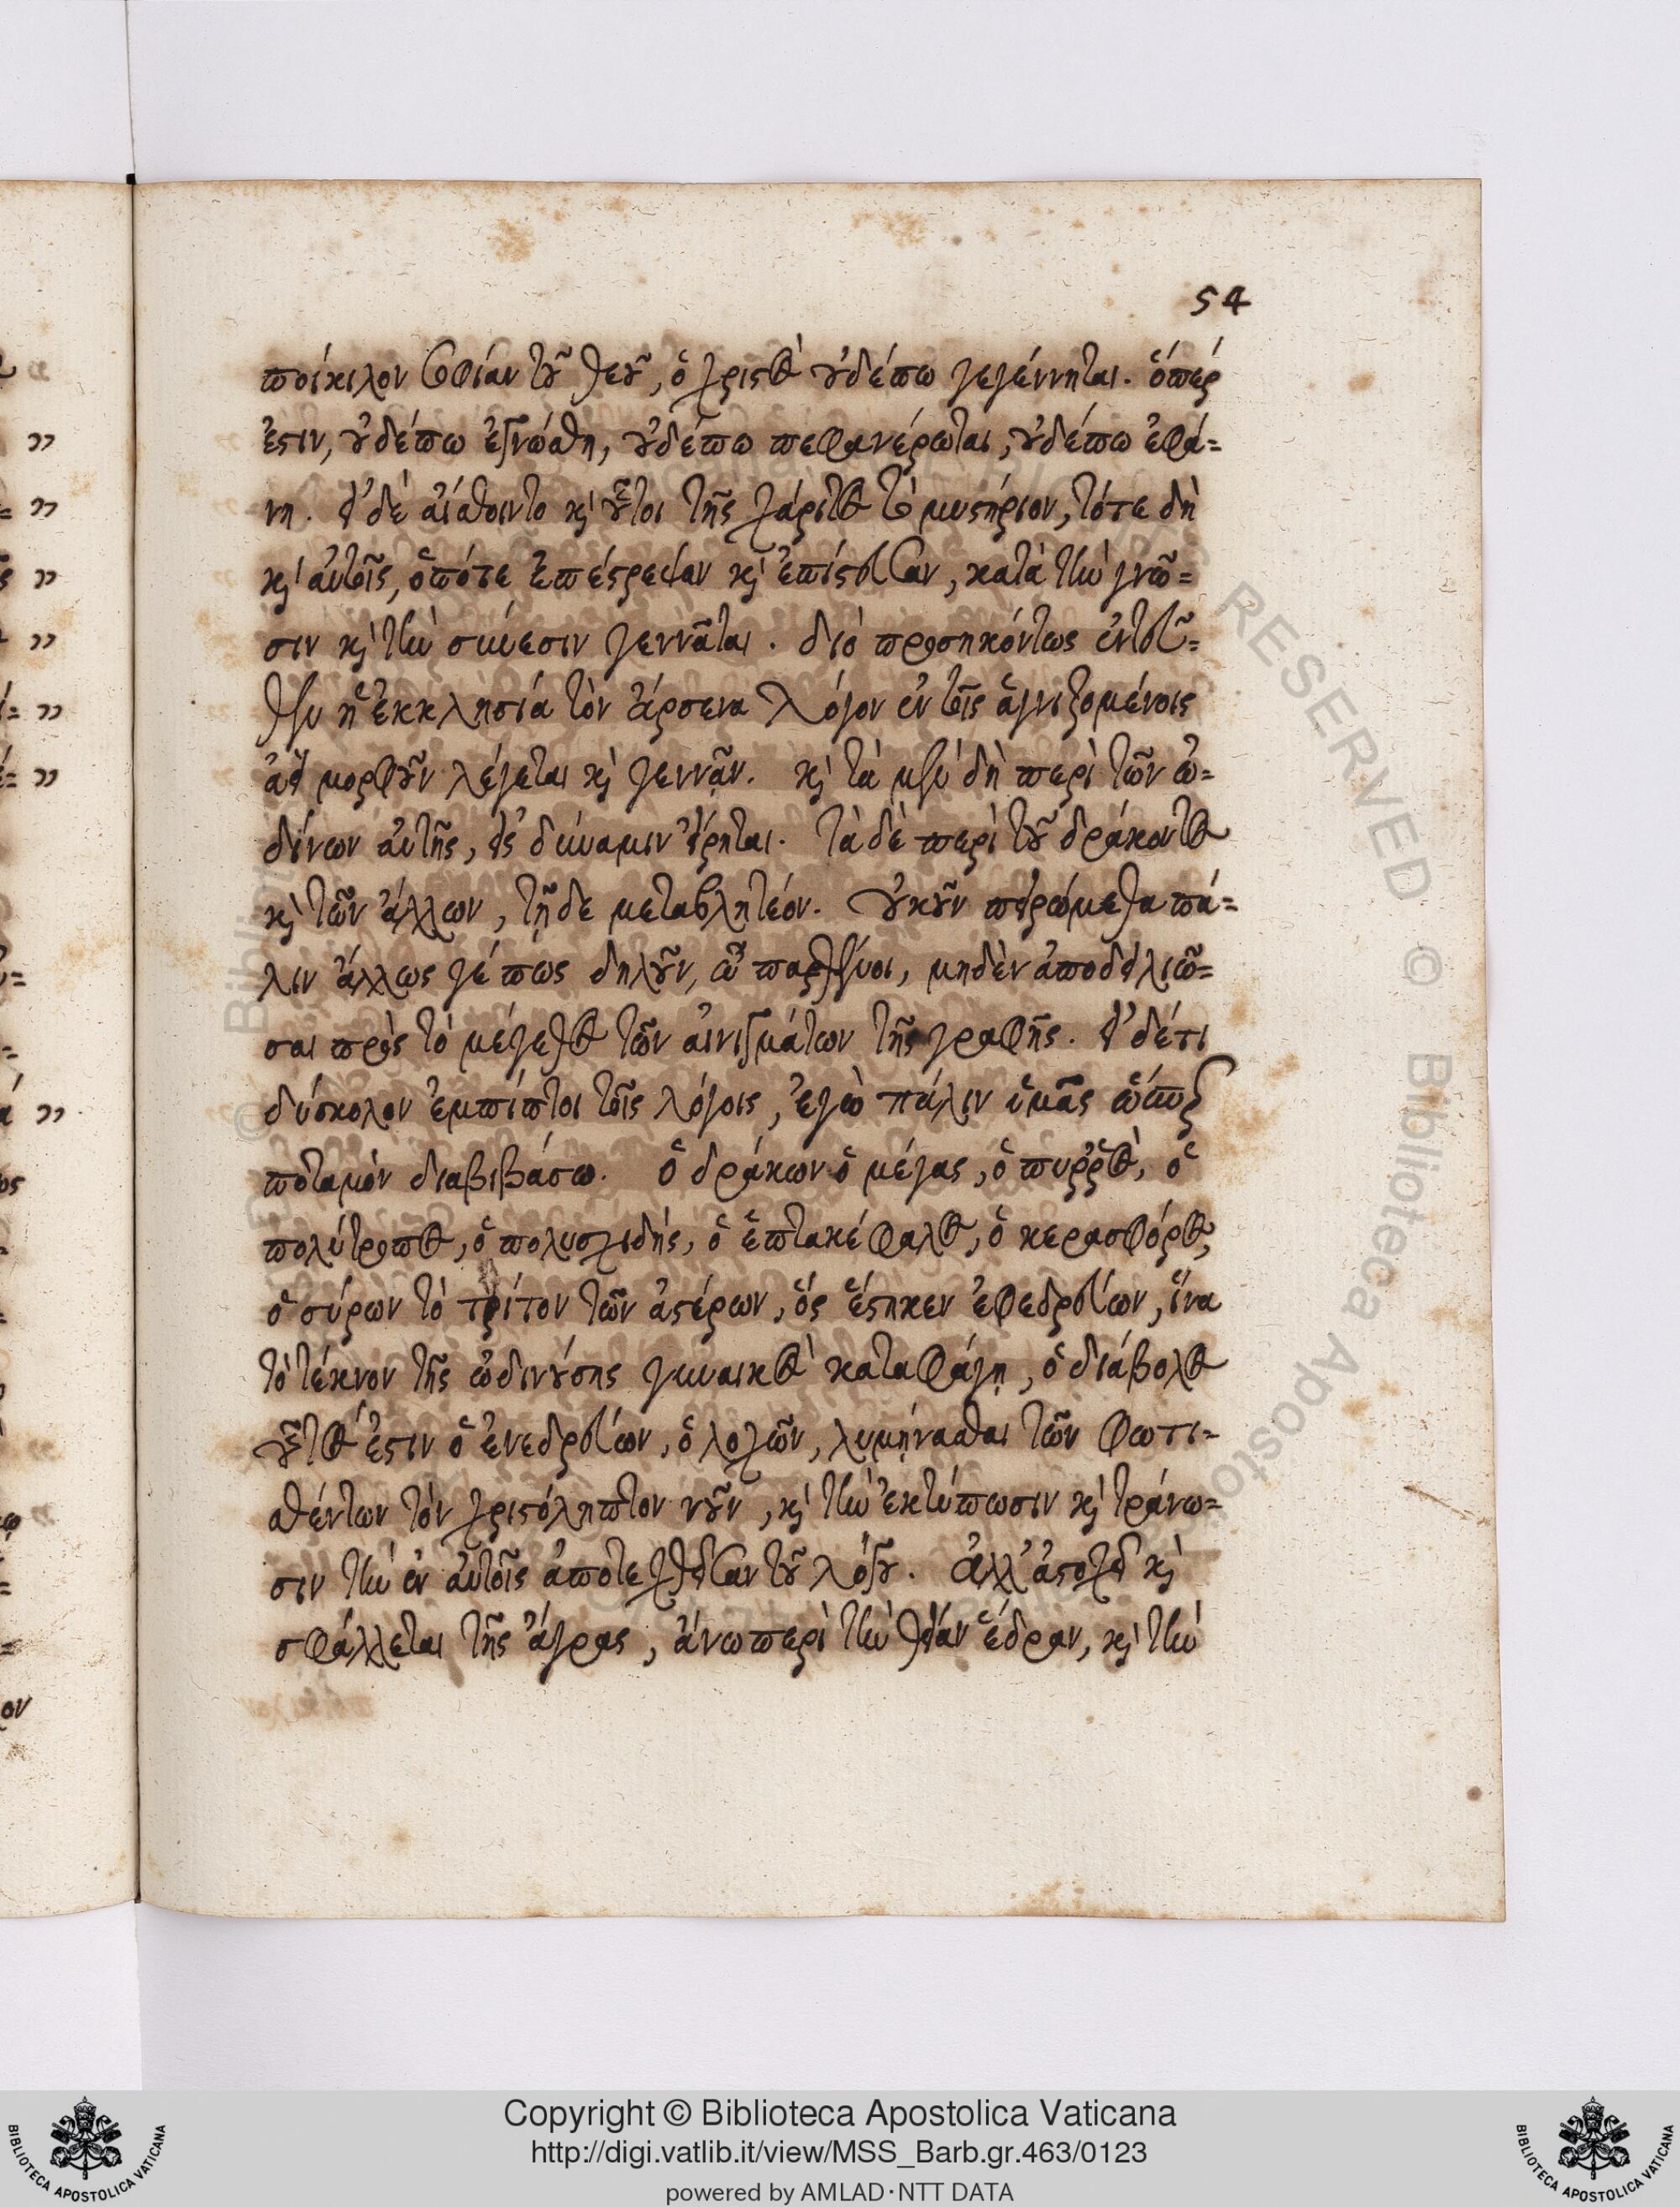 54
ποίκιλον σοφίαν τοῦ θεοῦ, ὁ χριστὸς οὐδέπω γεγέννηται. ὅπέρ
ἐστιν, οὐδέπω ἐγνώσθη, οὐδέπω πεφανέρωται, οὐδέπω ἐφά=
νη. εἰ δὲ αἴσθοιντο καὶ οὗτοι τῆς χάριτος τὸ μυστήριον, τότε δὴ
καὶ αὐτοῖς, ὁπότε ἐπέστρεψαν καὶ ἐπίστευσαν, κατὰ τὴν γνῶ=
σιν καὶ τὴν σύνεσιν γεννᾶται. διὸ προσηκόντως ἐντεῦ=
θεν ἡ ἐκκλησία τὸν ἄρσενα λόγον ἐν τοῖς ἁγνιζομένοις
ἀεὶ μορφοῦν λέγεται καὶ γεννᾷν. καὶ τὰ μὲν δὴ περὶ τῶν ὠ=
δίνων αὐτῆς, εἰς δύναμιν εἴρηται. Τὰ δὲ περὶ τοῦ δράκοντος
καὶ τῶν ἄλλων, τῇδε μεταβλητέον. Οὐκοῦν πειρώμεθα πά=
λιν ἄλλως γέ πως δηλοῦν, ὦ παρθένοι, μηδὲν ἀποδειλιῶ=
σαι πρὸς τὸ μέγεθος τῶν αἰνιγμάτων τῆς γραφῆς. Εἰ δέ τι
δύσκολον ἐμπίπτοι τοῖς λόγοις, ἐγὼ πάλιν ὑμᾶς ὥσπερ
ποταμὸν διαβιβάσω. Ὁ δράκων ὁ μέγας, ὁ πυῤῥὸς, ὁ
πολύτροπος, ὁ πολυσχιδής, ὁ ἑπτακέφαλος, ὁ κερασφόρος,
ὁ σύρων τὸ τρίτον τῶν ἀστέρων, ὅς ἕστηκεν ἐφεδρεύων, ἵνα
τὸ τέκνον τῆς ὠδινούσης γυναικὸς καταφάγῃ, ὁ διάβολος
οὗτός ἐστιν ὁ ἐνεδρεύων, ὁ λοχῶν, λυμήνασθαι τῶν φωτι=
σθέντων τὸν χριστόληπτον νοῦν, καὶ τὴν ἐκτύπωσιν καὶ τράνω=
σιν τὴν ἐν αὐτοῖς ἀποτεχθεῖσαν τοῦ λόγου. Ἀλλ' ἀστοχεῖ καὶ
σφάλλεται τῆς ἄγρας, ἄνω περὶ τὴν θείαν ἕδραν, καὶ τὴν
=
=
=
=
=
ον
© Biblioteca Apostolica
RESERVED
BIBLIOTECA APOSTOLICA VATICANA
Copyright © Biblioteca Apostolica Vaticana
http://digi.vatlib.it/view/MSS_Barb.gr.463/0123
powered by AMLAD·NTT DATA
BIBLIOTECA APOSTOLICA VATICANA